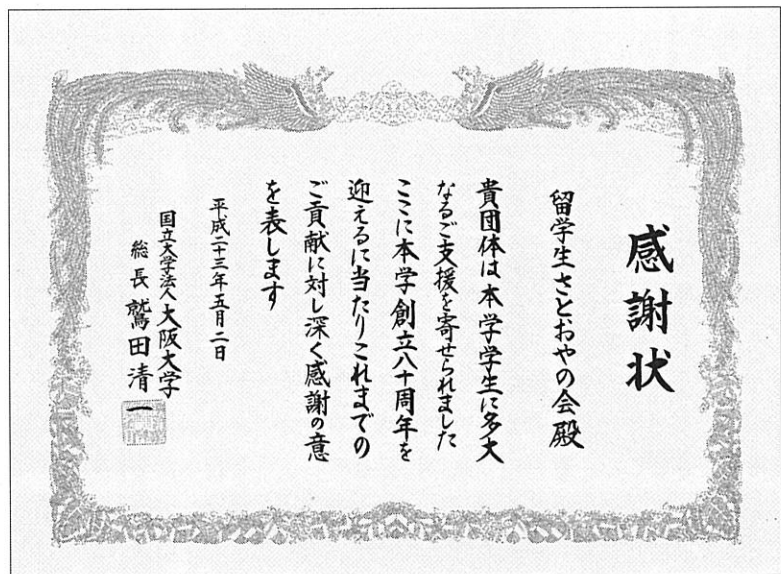 感謝状
留学生さとおやの会殿
貴団体は本学学生に多大
なるご支援を寄せられました
ここに本学創立八十周年を
迎えるに当たりこれまでの
ご貢献に対し深く感謝の意
を表します
平成二十三年五月二日
国立大学法人大阪大学
総長鷲田清一